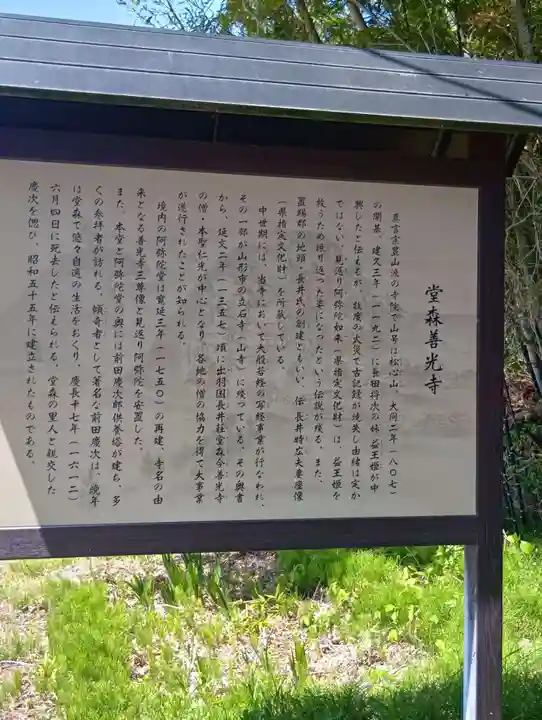 堂森善光寺
真言宗豊山派の寺院で山号は松心山。大同二年(八〇七)
の開基、建久三年(一一九二)に長田将次の妹・益王姫が中
興したと伝えるが、数度の火災で古記録が焼失し由緒は定か
ではない。見返り阿弥陀如来(県指定文化財)は、益王姫を
救うため振り返った姿になったという伝説が残る。また、
置賜郡の地頭・長井氏の創建ともいい、伝 長井時広夫妻座像
(県指定文化財)を所蔵している。
中世期には、当寺において大般若経の写経事業が行なわれ、
その一部が山形市の立石寺(山寺)に残っている。その奥書
から、延文二年(一三五七)頃に出羽国長井荘堂森今善光寺
の僧・本聖仁光が中心となり、各地の僧の協力を得て大事業
が遂行されたことが知られる。
境内の阿弥陀堂は寛延三年(一七五〇)の再建、寺名の由
来となる善光寺三尊像と見返り阿弥陀を安置した。
また、本堂と阿弥陀堂の奥には前田慶次郎供養塔が建ち、多
くの参拝者が訪れる。傾奇者として著名な前田慶次は、晩年
は堂森で悠々自適の生活をおくり、慶長十七年(一六一二)
六月四日に死去したと伝えられる。堂森の里人と親交した
慶次を偲び、昭和五十五年に建立されたものである。